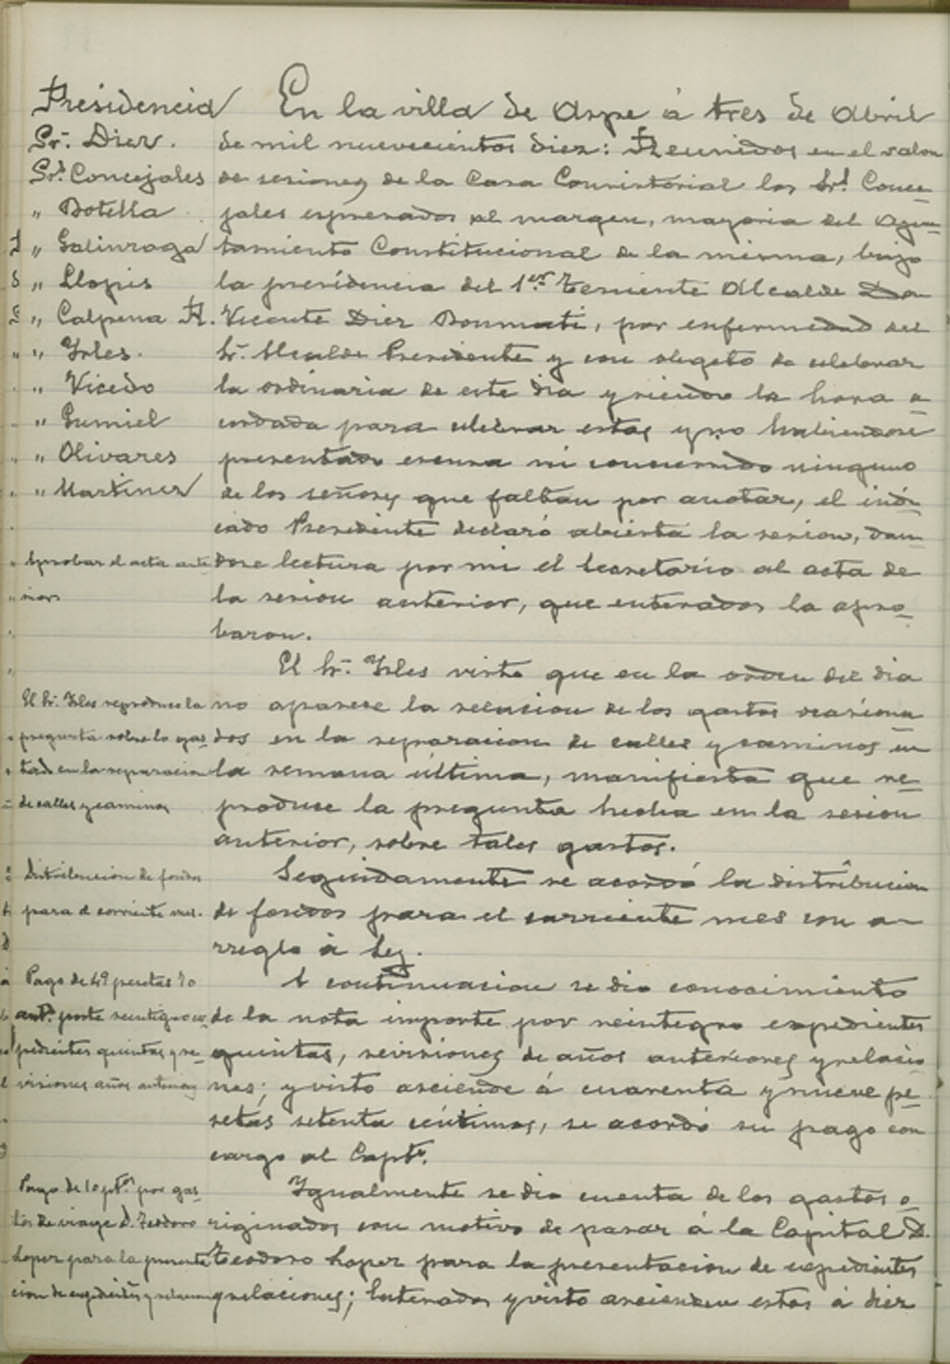 Presidencia
Sr. Diez.
Srs. Concejales
" Botella
" Galinzoga
" Llopis
" Calpena A.
" Irles.
" Vicedo
" Gumiel
" Olivares
" Martinez
Aprobar el acta ante
rior
El Sr. Irles reproduce la
pregunta sobre lo gas-
tado en la reparacion
de calles y caminos
Distribucion de fondos
para el corriente mes.
Pago de 49 pesetas 70
cents. porte reintegro ex-
pedientes quintas y re-
visiones años anteriores
Pago de 10 pts. por gas-
tos de viaje D. Teodoro
Lopez para la presenta
cion de expedientes y relaciones
En la villa de Aspe á tres de Abril
de mil nuevecientos diez: Reunidos en el salon
de sesiones de la Casa Consistorial los Srs. Conce-
jales espresados al margen, mayoria del Ayun-
tamiento Constitucional de la misma, bajo
la presidencia del 1er. Teniente Alcalde Don
Vicente Diez Bonmati, por enfermedad del
Sr. Alcalde Presidente y con obgeto de celebrar
la ordinaria de este dia y siendo la hora a-
cordada para celebrar estas y no habiendose
presentado escusa ni concurrido ninguno
de los señores que faltan por anotar, el indi-
cado Presidente declaró abierta la sesion, dan-
dose lectura por mi el Secretario al acta de
la sesion anterior, que enterados la apro-
baron.
El Sr. Irles visto que en la orden del dia
no aparece la relacion de los gastos ocasiona
dos en la reparacion de calles y caminos en
la semana última, manifiesta que re-
produce la pregunta hecha en la sesion
anterior, sobre tales gastos.
Seguidamente se acordó la distribucion
de fondos para el corriente mes con a-
rreglo á Ley.
A continuacion se dio conocimiento
de la nota importe por reintegro expedientes
quintas, revisiones de años anteriores y relacio
nes; y visto asciende á cuarenta y nueve pe-
setas setenta céntimos, se acordó su pago con
cargo al Capto.
Igualmente se dio cuenta de los gastos o-
riginados con motivo de pasar á la Capital D.
Teodoro Lopez para la presentacion de expedientes
y relaciones; Enterados y visto ascienden estos á diez